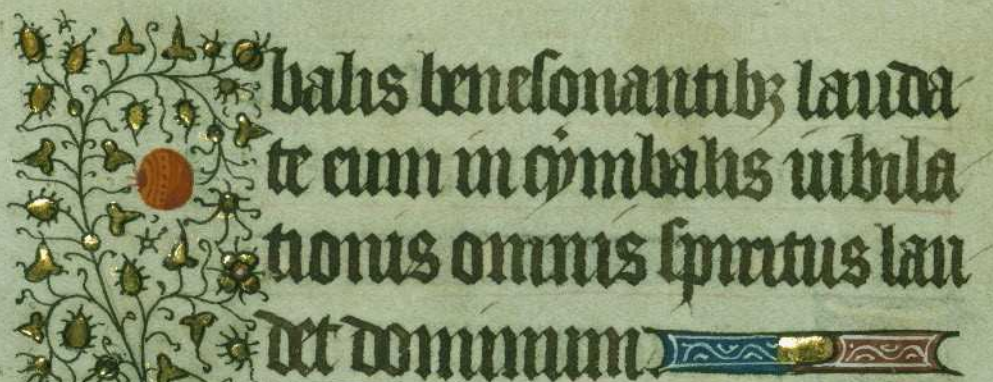 balis benesonantibꝫ lauda
te eum in cymbalis iubila
tionis omnis spiritus lau
det dominum